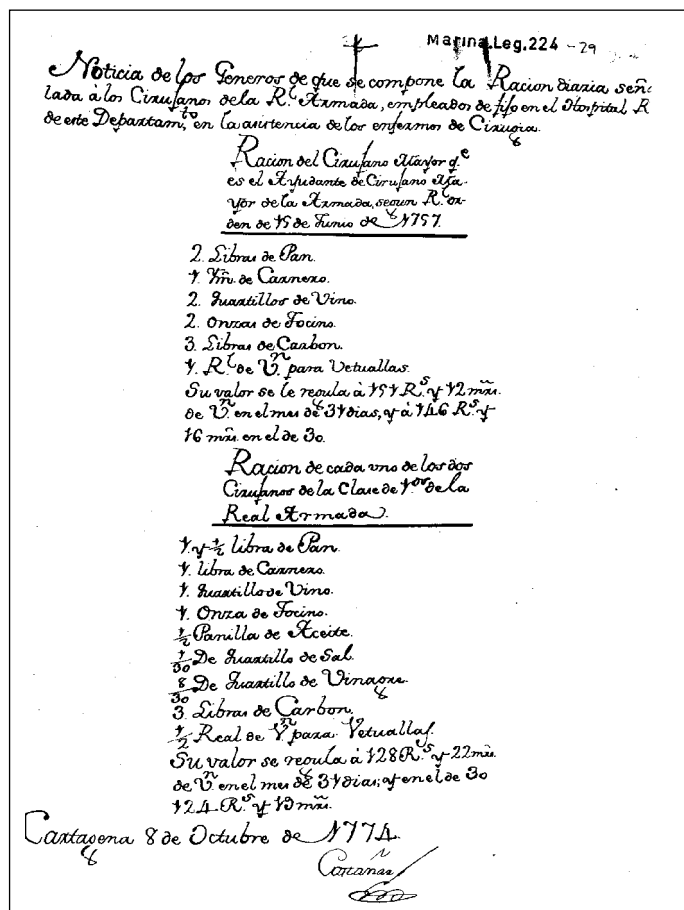 Marina.Leg.224 - 29
Noticia de los Generos de que se compone la Racion diaria señ
lada à los Cirujanos de la R.l Armada, empleados de fijo en el Hospital R
de este Departam.to, en la asistencia de los enfermos de Cirugia.
Racion del Cirujano Mayor q.e
es el Ayudante de Cirujano Ma-
yor de la Armada, segun R.l or-
den de 15 de Junio de 1757.
2. Libras de Pan.
1. Ydm. de Carnero.
2. Quartillos de Vino.
2. Onzas de Tocino.
3. Libras de Carbon.
1. R.l de V.n para Vetuallas.
Su valor se le regula à 151 R.s y 12 mrs.
de V.n en el mes de 31 dias, y à 146 R.s y
16 mrs. en el de 30.
Racion de cada uno de los dos
Cirujanos de la Clase de 1.os de la
Real Armada.
1. y 1/2 libra de Pan.
1. libra de Carnero.
1. Quartillo de Vino.
1. Onza de Tocino.
1/2 Panilla de Aceite.
1/30 De Quartillo de Sal.
8/30 De Quartillo de Vinagre.
3. Libras de Carbon.
1/2 Real de V.n para Vetuallas.
Su valor se regula à 128 R.s y 22 mrs.
de V.n en el mes de 31 dias; y en el de 30
124 R.s y 13 mrs.
Cartagena 8 de Octubre de 1774.